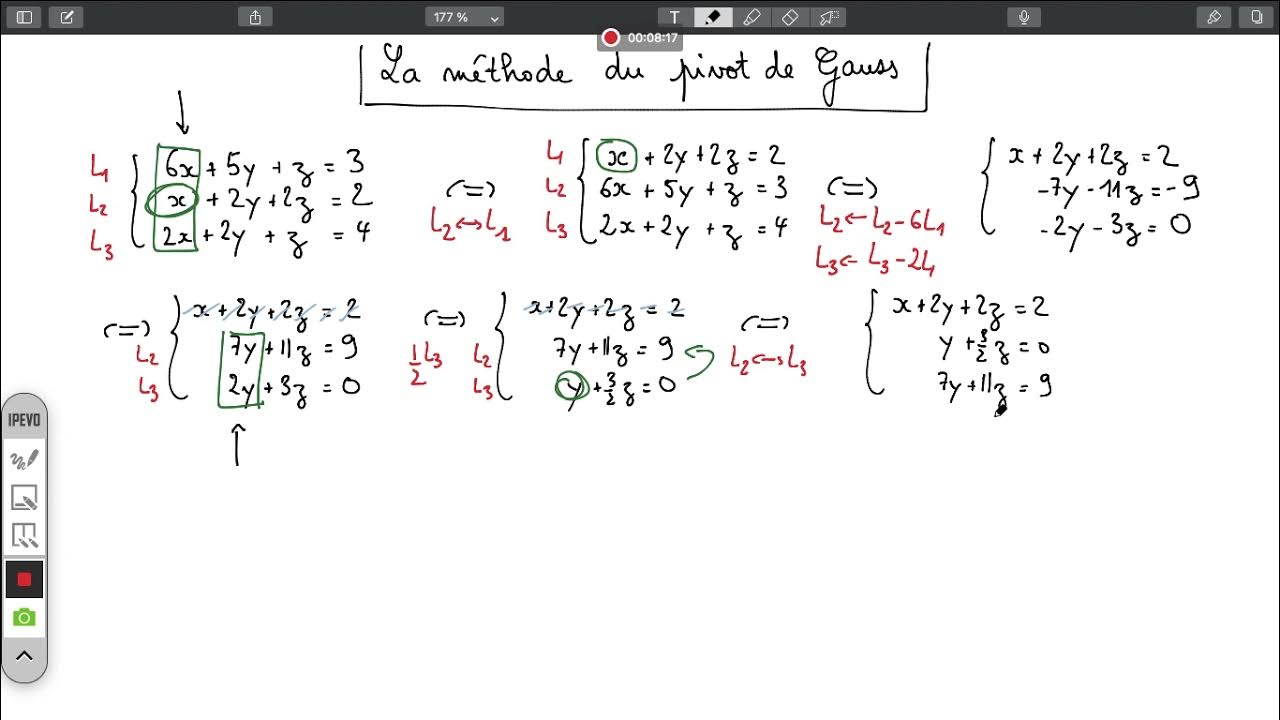 177 %
T
00:08:17
La méthode du pivot de Gauss
L1 6x + 5y + z = 3
L2 x + 2y + 2z = 2
L3 2x + 2y + z = 4
(=)
L2 ↔ L1
L1 x + 2y + 2z = 2
L2 6x + 5y + z = 3
L3 2x + 2y + z = 4
(=)
L2 ← L2 - 6L1
L3 ← L3 - 2L1
x + 2y + 2z = 2
-7y - 11z = -9
-2y - 3z = 0
(=) x + 2y + 2z = 2
L2 7y + 11z = 9
L3 2y + 3z = 0
(=)
1/2 L3
x + 2y + 2z = 2
L2 7y + 11z = 9
L3 y + 3/2 z = 0
(=)
L2 ↔ L3
x + 2y + 2z = 2
y + 3/2 z = 0
7y + 11z = 9
IPEVO